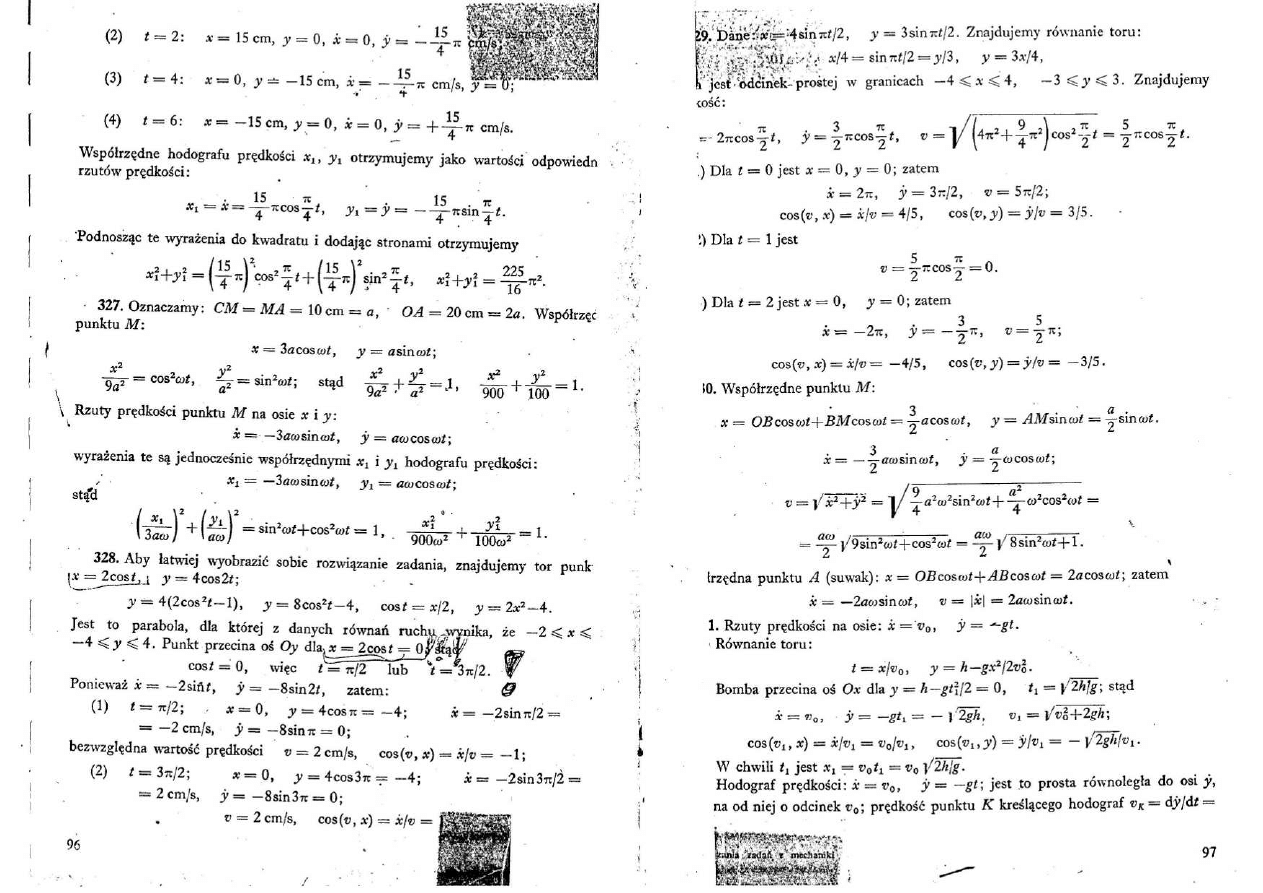 (2) t = 2: x = 15 cm, y = 0, ẋ = 0, ẏ = −15/4 π cm/s;
(3) t = 4: x = 0, y = −15 cm, ẋ = −15/4 π cm/s, ẏ = 0;
(4) t = 6: x = −15 cm, y = 0, ẋ = 0, ẏ = +15/4 π cm/s.
Współrzędne hodografu prędkości x₁, y₁ otrzymujemy jako wartości odpowiedn
rzutów prędkości:
x₁ = ẋ = −15/4 πcos π/4 t, y₁ = ẏ = −15/4 πsin π/4 t.
Podnosząc te wyrażenia do kwadratu i dodając stronami otrzymujemy
x₁²+y₁² = (15/4 π)² cos² π/4 t + (15/4 π)² sin² π/4 t, x₁²+y₁² = 225/16 π².
327. Oznaczamy: CM = MA = 10 cm = a, OA = 20 cm = 2a. Współrzęd
punktu M:
x = 3acosωt, y = asinωt;
x²/9a² = cos²ωt, y²/a² = sin²ωt; stąd x²/9a² + y²/a² = 1, x²/900 + y²/100 = 1.
Rzuty prędkości punktu M na osie x i y:
ẋ = −3aωsinωt, ẏ = aωcosωt;
wyrażenia te są jednocześnie współrzędnymi x₁ i y₁ hodografu prędkości:
x₁ = −3aωsinωt, y₁ = aωcosωt;
stąd
(x₁/3aω)² + (y₁/aω)² = sin²ωt+cos²ωt = 1, x₁²/900ω² + y₁²/100ω² = 1.
328. Aby łatwiej wyobrazić sobie rozwiązanie zadania, znajdujemy tor punk
x = 2cost, y = 4cos2t;
y = 4(2cos²t−1), y = 8cos²t−4, cost = x/2, y = 2x²−4.
Jest to parabola, dla której z danych równań ruchu wynika, że −2 ⩽ x ⩽
−4 ⩽ y ⩽ 4. Punkt przecina oś Oy dla x = 2cost = 0; stąd
cost = 0, więc t = π/2 lub t = 3π/2. !
Ponieważ ẋ = −2sint, ẏ = −8sin2t, zatem:
(1) t = π/2; x = 0, y = 4cosπ = −4; ẋ = −2sinπ/2 =
= −2 cm/s, ẏ = −8sinπ = 0;
bezwzględna wartość prędkości v = 2 cm/s, cos(v, x) = ẋ/v = −1;
(2) t = 3π/2; x = 0, y = 4cos3π = −4; ẋ = −2sin3π/2 =
= 2 cm/s, ẏ = −8sin3π = 0;
v = 2 cm/s, cos(v, x) = ẋ/v =
96
29. Dane: x = 4sinπt/2, y = 3sinπt/2. Znajdujemy równanie toru:
x/4 = sinπt/2 = y/3, y = 3x/4,
jest odcinek prostej w granicach −4 ⩽ x ⩽ 4, −3 ⩽ y ⩽ 3. Znajdujemy
kość:
= 2πcos π/2 t, ẏ = 3/2 πcos π/2 t, v = √((4π²+9/4 π²)cos² π/2 t) = 5/2 πcos π/2 t.
) Dla t = 0 jest x = 0, y = 0; zatem
ẋ = 2π, ẏ = 3π/2, v = 5π/2;
cos(v, x) = ẋ/v = 4/5, cos(v, y) = ẏ/v = 3/5.
) Dla t = 1 jest
v = 5/2 πcos π/2 = 0.
) Dla t = 2 jest x = 0, y = 0; zatem
ẋ = −2π, ẏ = −3/2 π, v = 5/2 π;
cos(v, x) = ẋ/v = −4/5, cos(v, y) = ẏ/v = −3/5.
30. Współrzędne punktu M:
x = OBcosωt+BMcosωt = 3/2 acosωt, y = AMsinωt = a/2 sinωt.
ẋ = −3/2 aωsinωt, ẏ = a/2 ωcosωt;
v = √(ẋ²+ẏ²) = √(9/4 a²ω²sin²ωt + a²/4 ω²cos²ωt) =
= aω/2 √(9sin²ωt+cos²ωt) = aω/2 √(8sin²ωt+1).
łrzędna punktu A (suwak): x = OBcosωt+ABcosωt = 2acosωt; zatem
ẋ = −2aωsinωt, v = |ẋ| = 2aωsinωt.
1. Rzuty prędkości na osie: ẋ = v₀, ẏ = −gt.
Równanie toru:
t = x/v₀, y = h−gx²/2v₀².
Bomba przecina oś Ox dla y = h−gt₁²/2 = 0, t₁ = √(2h/g); stąd
ẋ = v₀, ẏ = −gt₁ = −√(2gh), v₁ = √(v₀²+2gh);
cos(v₁, x) = ẋ/v₁ = v₀/v₁, cos(v₁, y) = ẏ/v₁ = −√(2gh)/v₁.
W chwili t₁ jest x₁ = v₀t₁ = v₀√(2h/g).
Hodograf prędkości: ẋ = v₀, ẏ = −gt; jest to prosta równoległa do osi ẏ,
na od niej o odcinek v₀; prędkość punktu K kreślącego hodograf v_K = dẏ/dt =
zadań z mechaniki
97